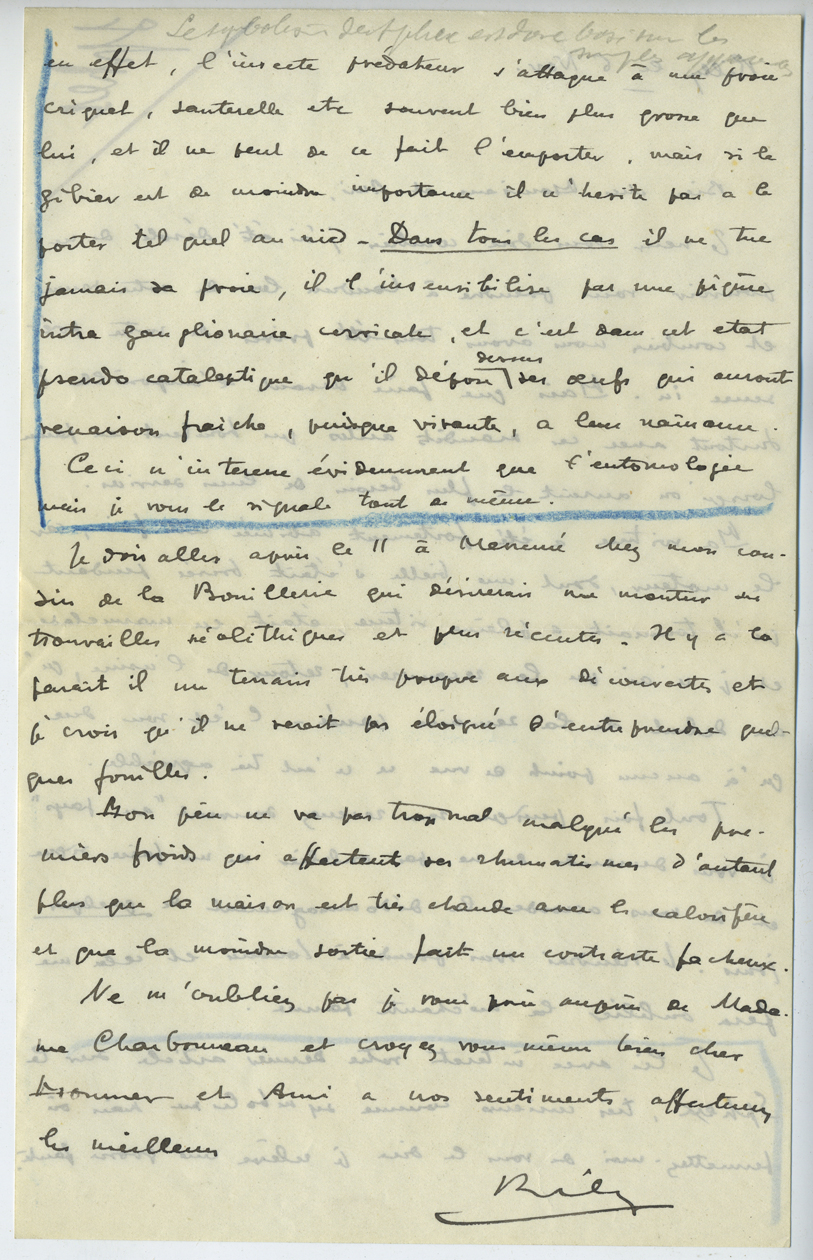 Le symbolisme du sphex est donc basé sur les
simples apparences
en effet, l'insecte prédateur s'attaque à une proie
criquet, sauterelle etc souvent bien plus grosse que
lui, et il ne peut de ce fait l'emporter, mais si le
gibier est de moindre importance il n'hésite pas a le
porter tel quel au nid - Dans tous les cas il ne tue
jamais sa proie, il l'insensibilise par une piqûre
intra ganglionaire cervicale, et c'est dans cet etat
pseudo cataleptique qu'il dépose dessus ses œufs qui auront
venaison fraîche, puisque vivante, a leur naissance.
Ceci n'interesse évidemment que l'entomologie
mais je vous le signale tout de même.
Je dois aller après le 11 à chez mon cou-
sin de la Bouillerie qui désirerais me montrer ses
trouvailles néolithiques et plus récentes. Il y a la
parait il un terrain très propre aux découvertes et
je crois qu'il ne serait pas éloigné d'entreprendre quel-
ques fouilles.
Mon père ne va pas trop mal malgré les pre-
miers froids qui affectent ses rhumatismes d'autant
plus que la maison est très chaude avec le calorifère
et que la moindre sortie fait un contraste facheux.
Ne m'oubliez pas je vous prie auprès de Mada-
me Charbonneau et croyez vous même bien cher
Monsieur et Ami a nos sentiments affectueux
les meilleurs